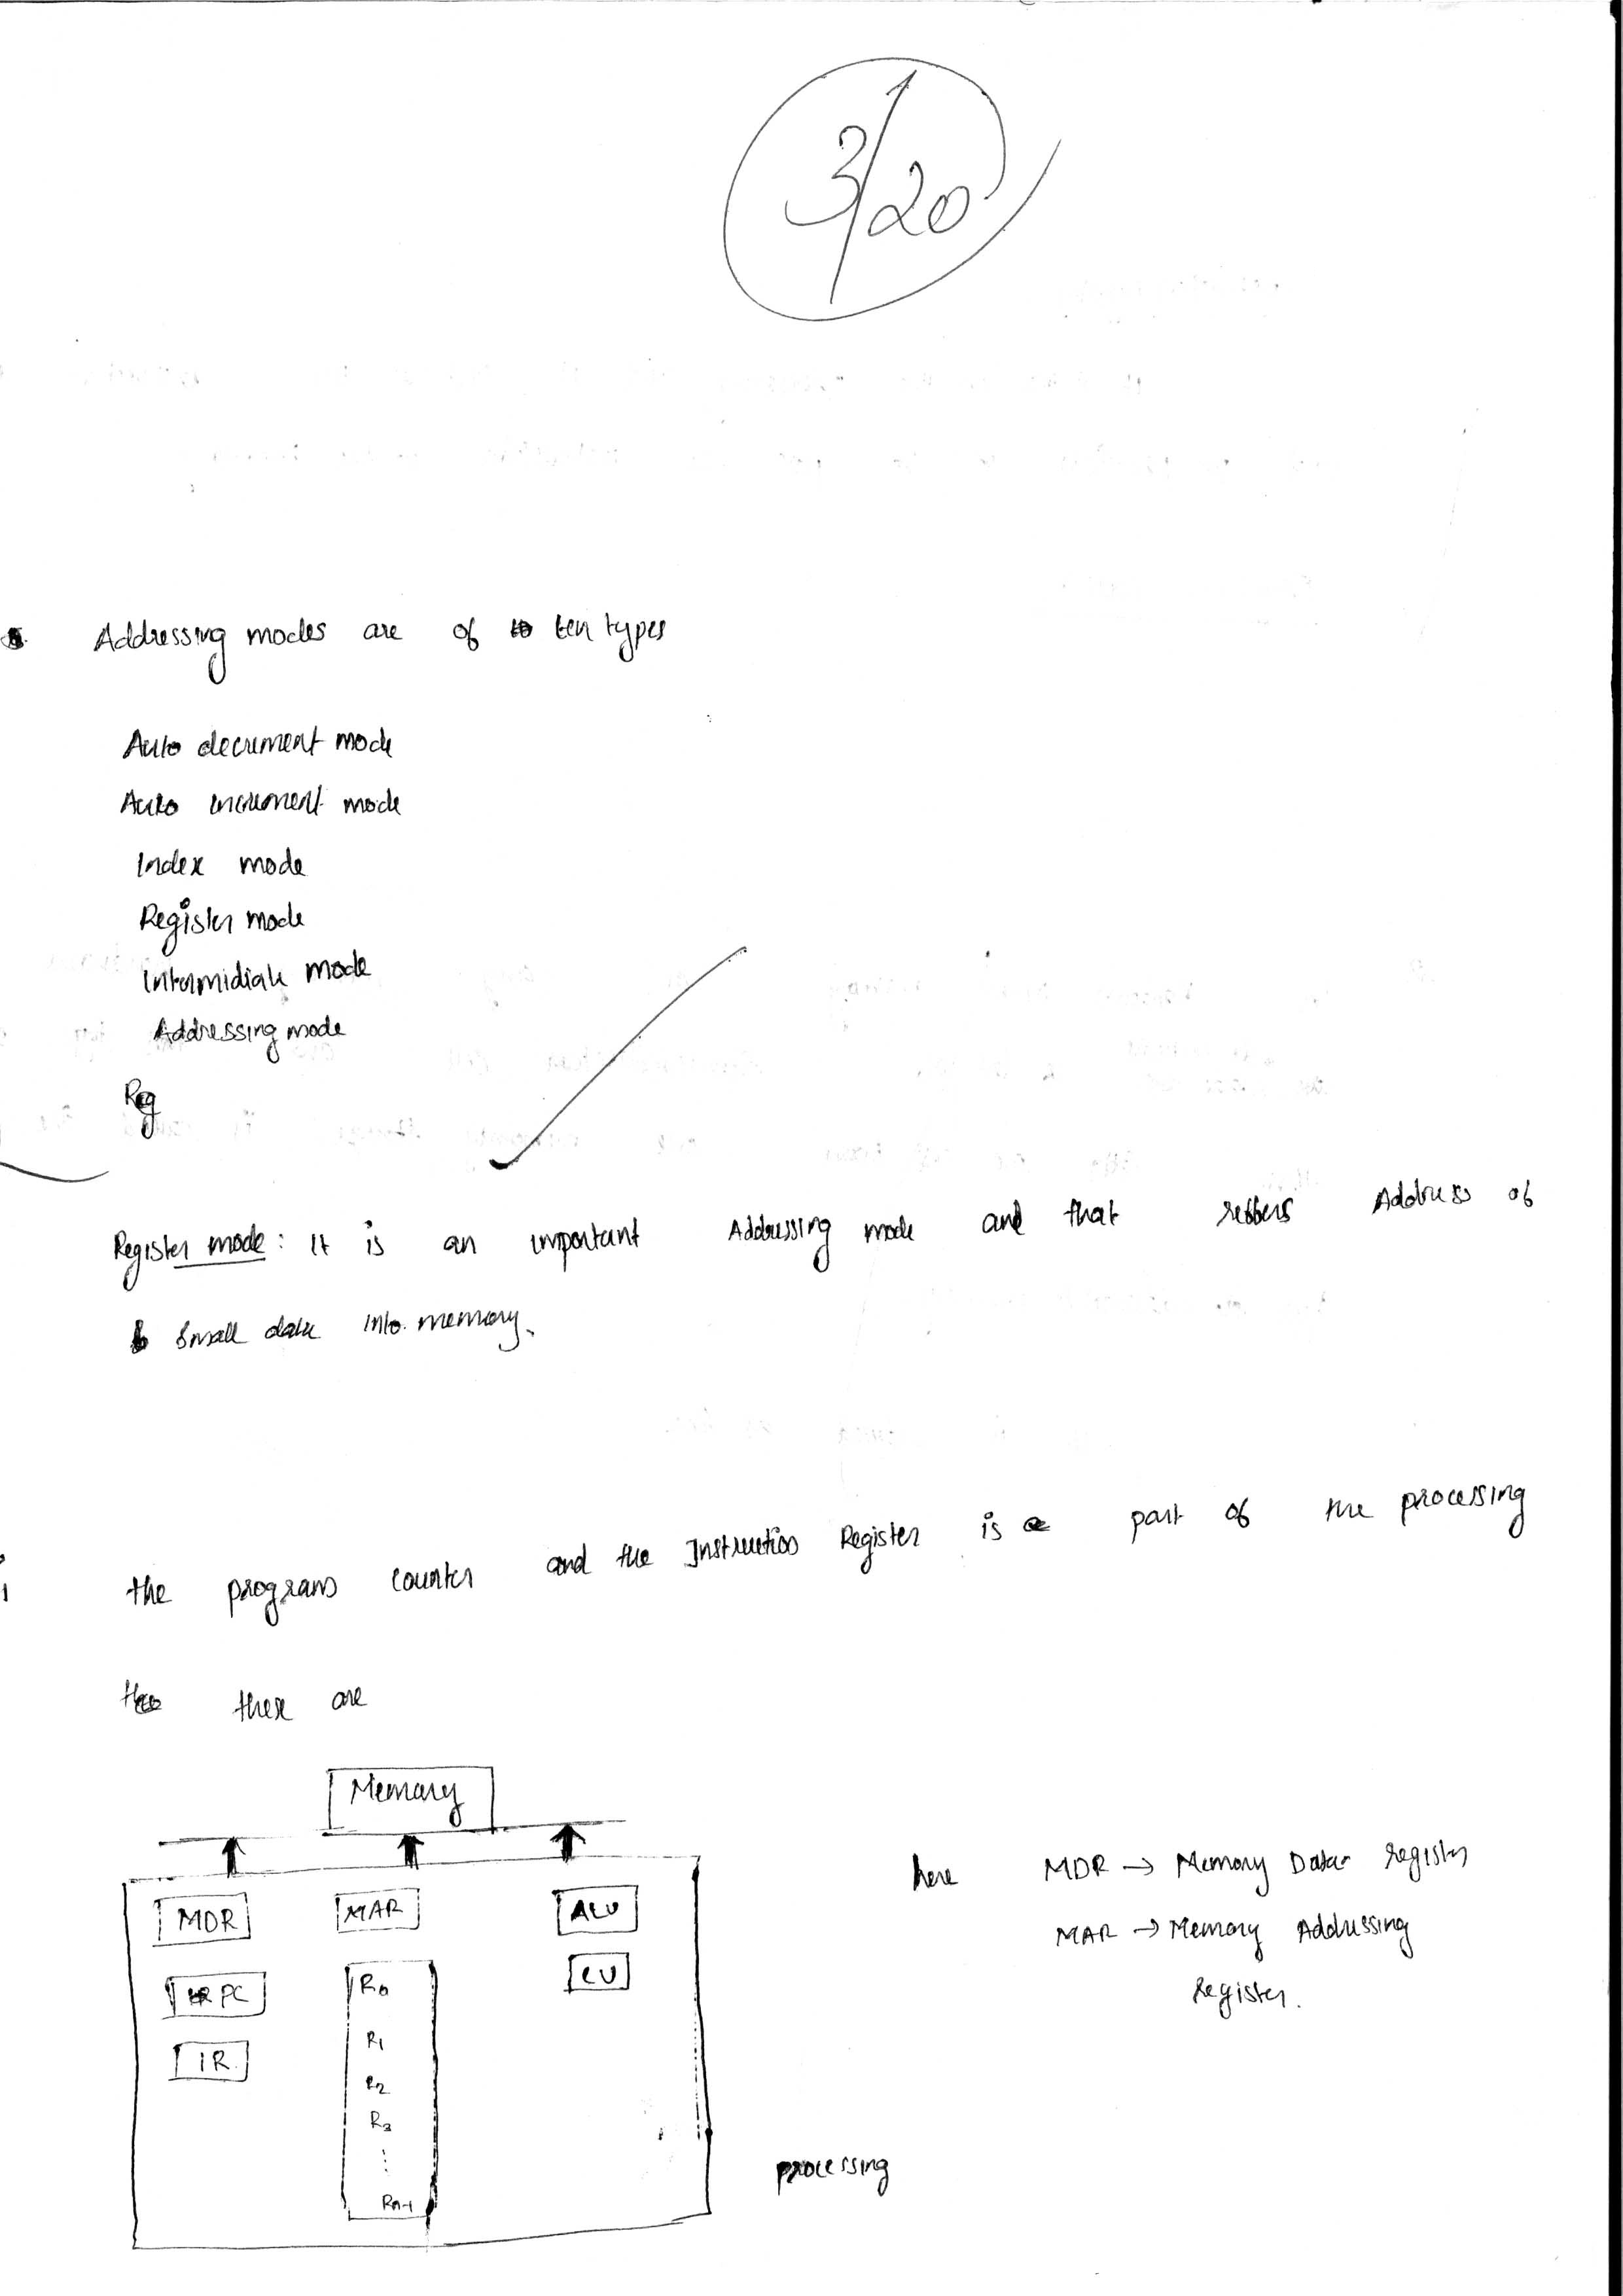 3/20
Addressing modes are of ten types
Auto decrement mode
Auto increment mode
Index mode
Register mode
Intermidiate mode
Addressing mode
Reg
Register mode: It is an important Addressing mode and that reffers Address of
small data into memory.
the program counter and the Instruction Register is a part of the processing
there are
Memory
MDR MAR ALU
PC R0 CU
IR R1
R2
R3
Rn-1
here MDR → Memory Data register
MAR → Memory Addressing
Register.
processing